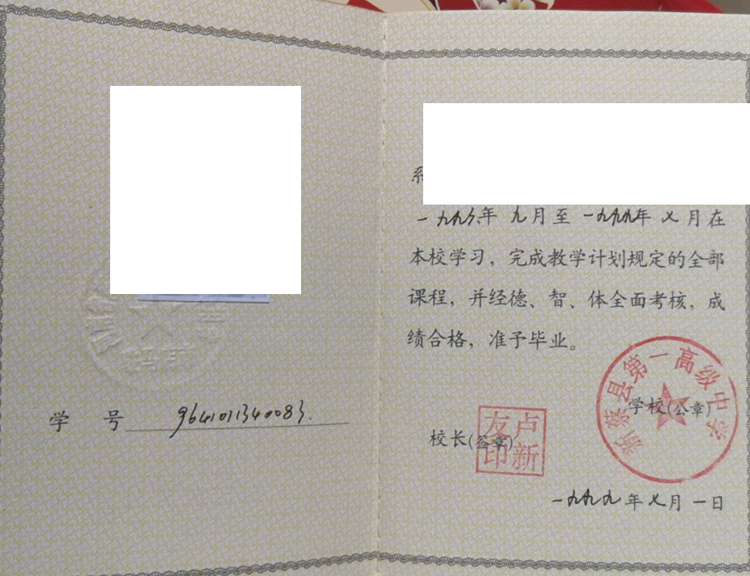 学 号 9641011340083.
系
一九九六年 九月至 一九九九年 七月在
本校学习，完成教学计划规定的全部
课程，并经德、智、体全面考核，成
绩合格，准予毕业。
新蔡县第一高级中学
学校(公章)
校长(签章)
卢新友印
一九九九年七月一日